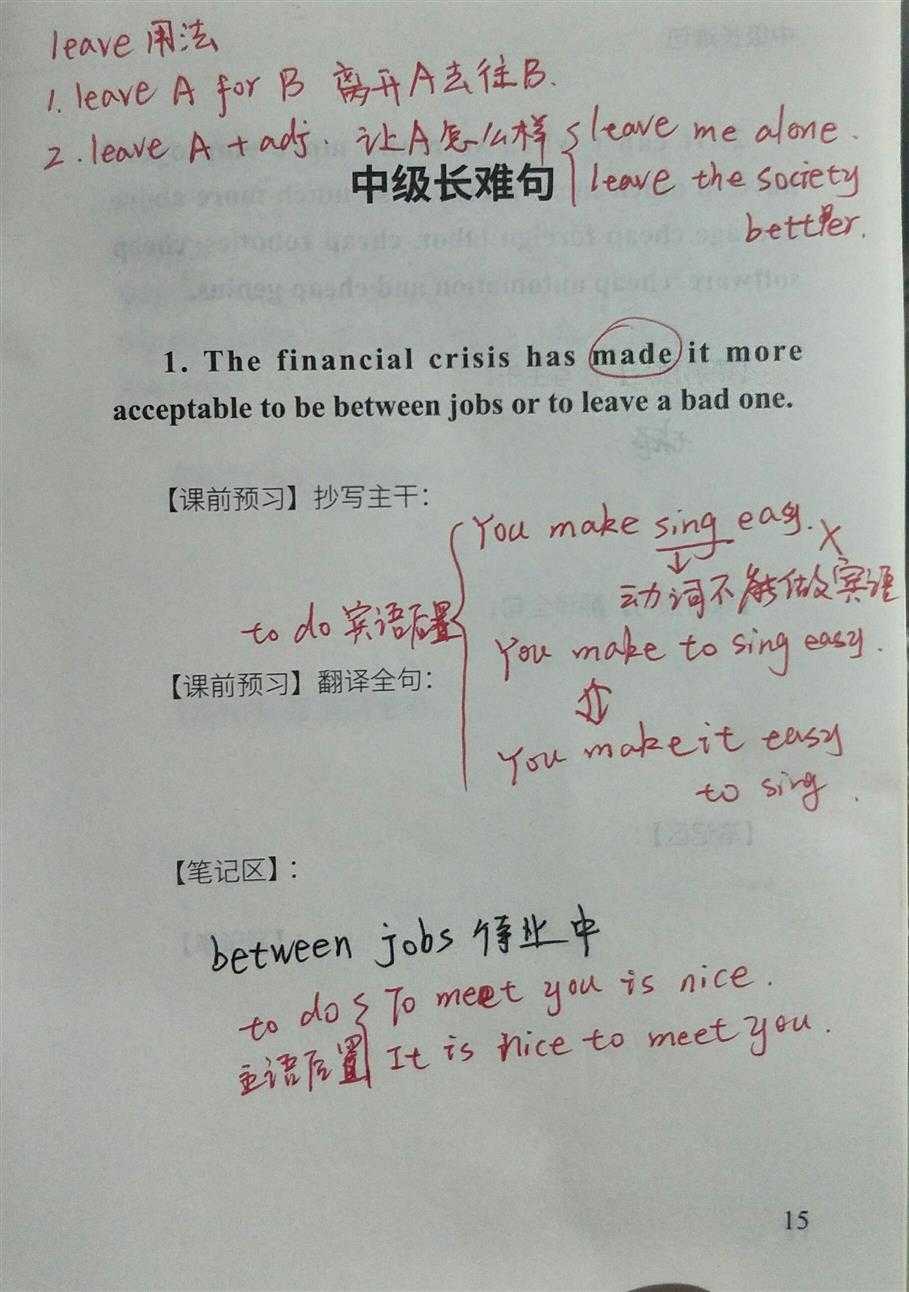 leave 用法
1. leave A for B 离开A去往B.
2. leave A + adj. 让A怎么样 leave me alone.
中级长难句 leave the society
better.
1. The financial crisis has made it more
acceptable to be between jobs or to leave a bad one.
【课前预习】抄写主干：
You make sing easy. X
动词不能做宾语
to do 宾语后置
You make to sing easy.
【课前预习】翻译全句：
⇕
You make it easy
to sing.
【笔记区】：
between jobs 待业中
to do To meet you is nice.
主语后置 It is nice to meet you.
15